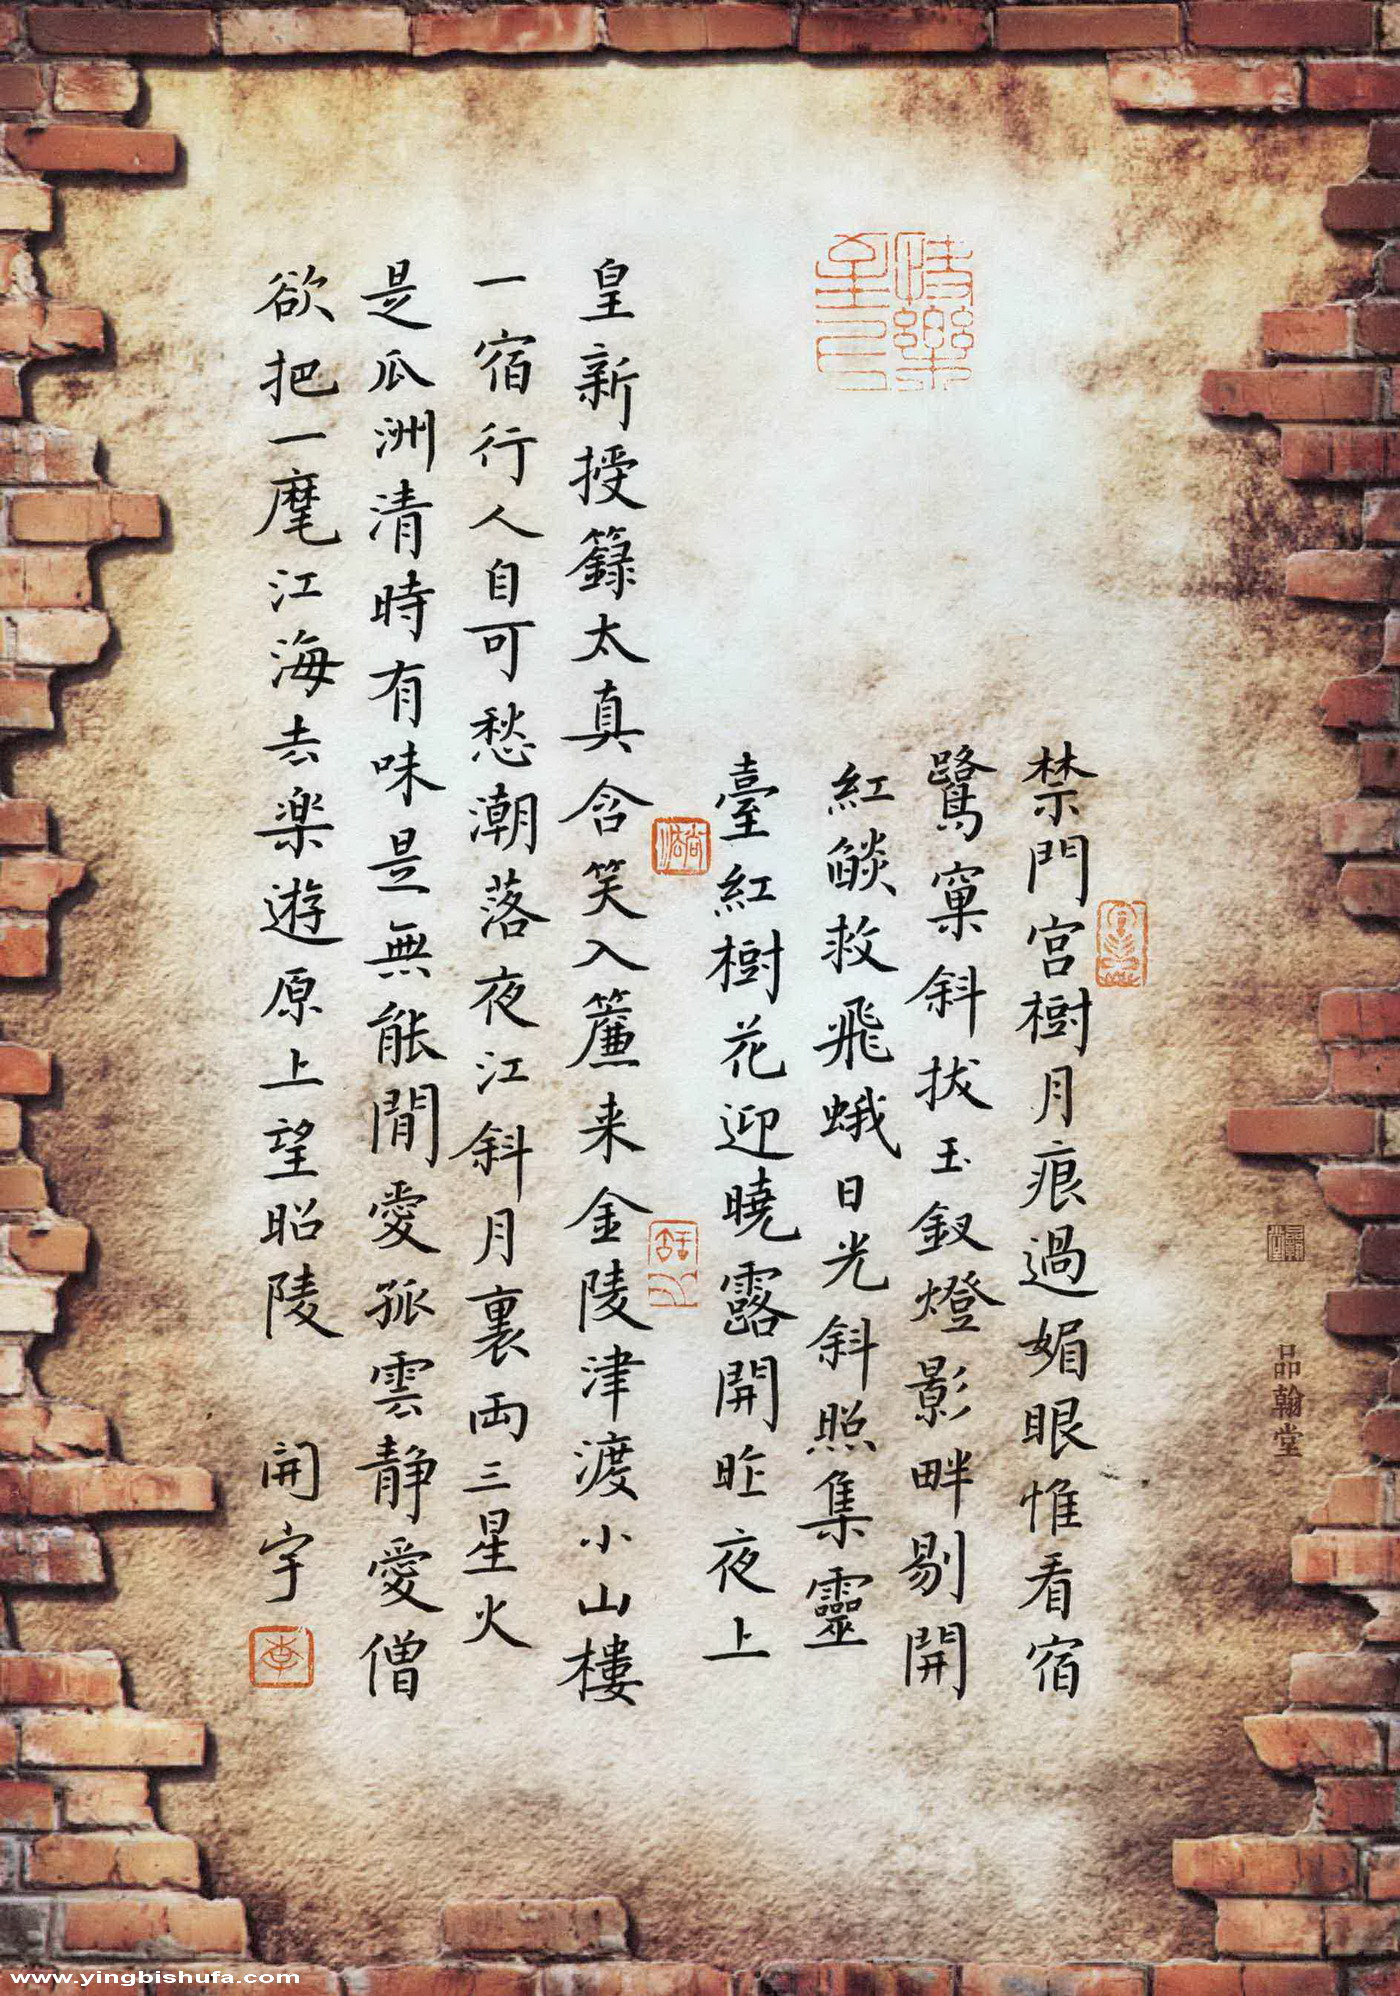 禁門宮樹月痕過媚眼惟看宿
鷺窠斜拔玉釵燈影畔剔開
紅燄救飛蛾日光斜照集靈
臺紅樹花迎曉露開昨夜上
皇新授籙太真含笑入簾来金陵津渡小山樓
一宿行人自可愁潮落夜江斜月裏両三星火
是瓜洲清時有味是無能閒愛孤雲静愛僧
欲把一麾江海去楽遊原上望昭陵
開宇
品翰堂
www.yingbishufa.com